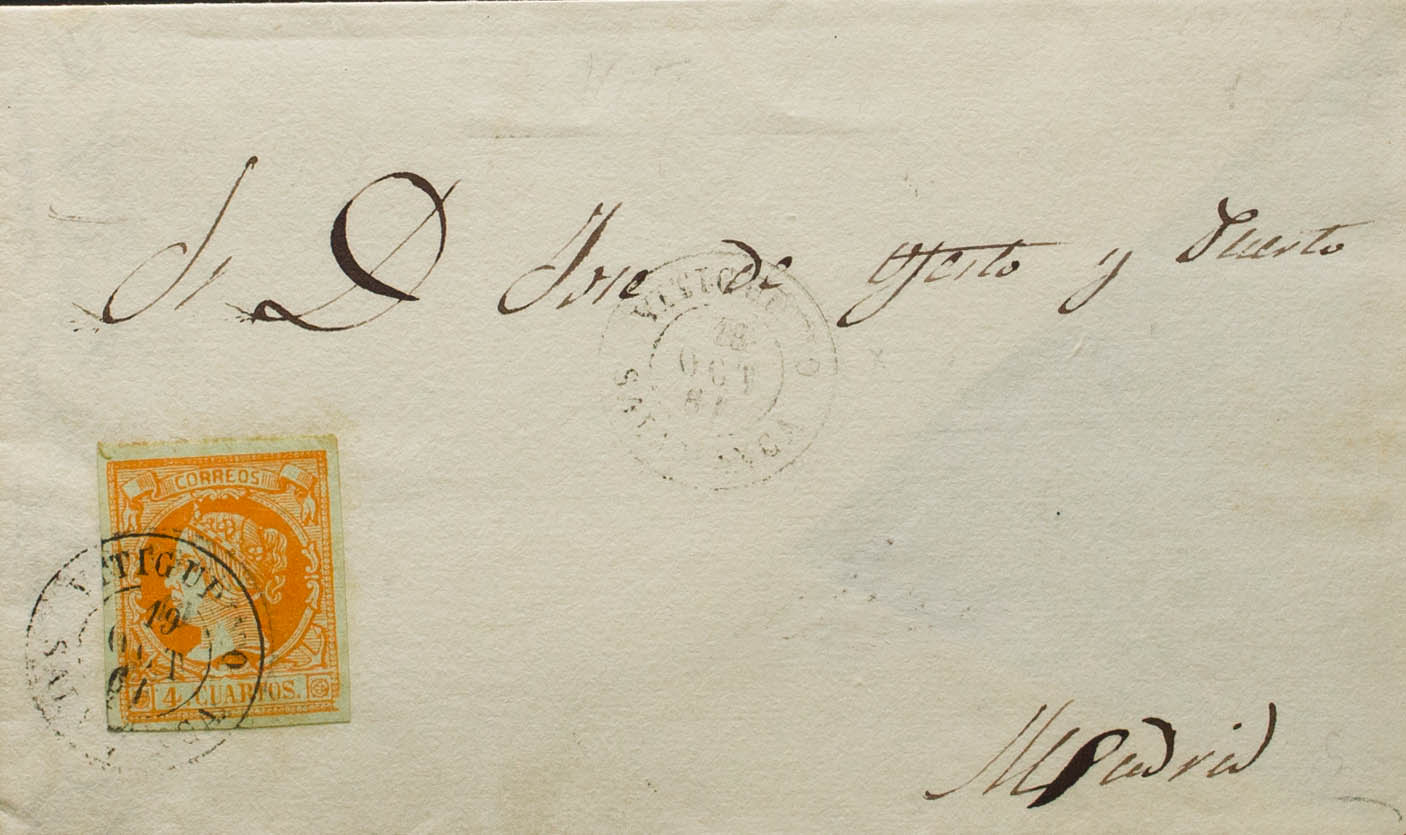 Sr D Jose de Gesto y Puerto
VITIGUDINO
18
OCT
61
SALAMANCA
CORREOS
VITIGUDINO
19
OCT
61
SALAMANCA
4 CUARTOS.
Madrid